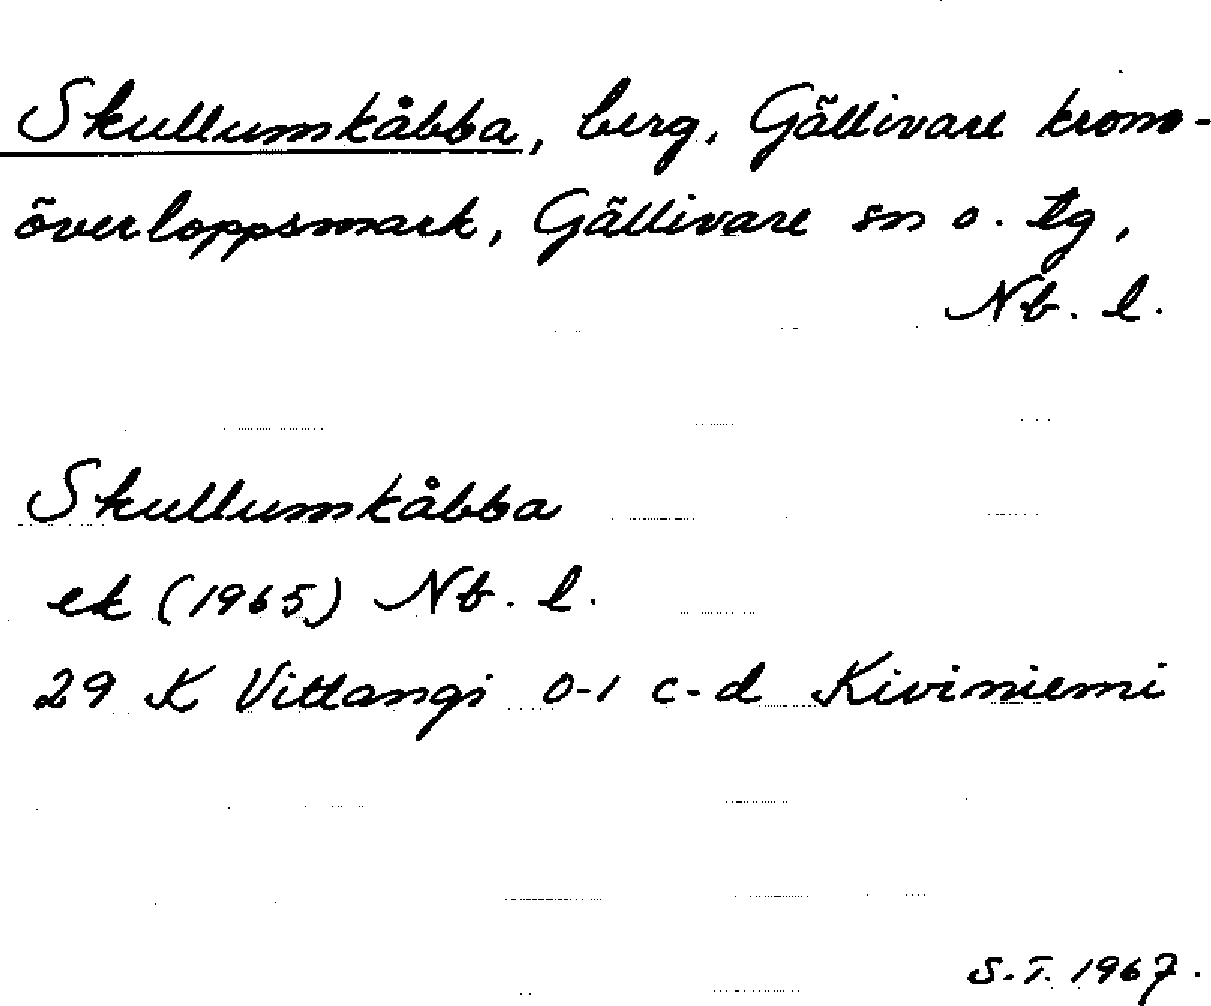 Skullumkåbba, berg, Gällivare krono-
överloppsmark, Gällivare sn o. tg,
Nb. l.
Skullumkåbba
ek (1965) Nb. l.
29 K Vittangi 0-1 c-d Kiviniemi
S.T. 1967.